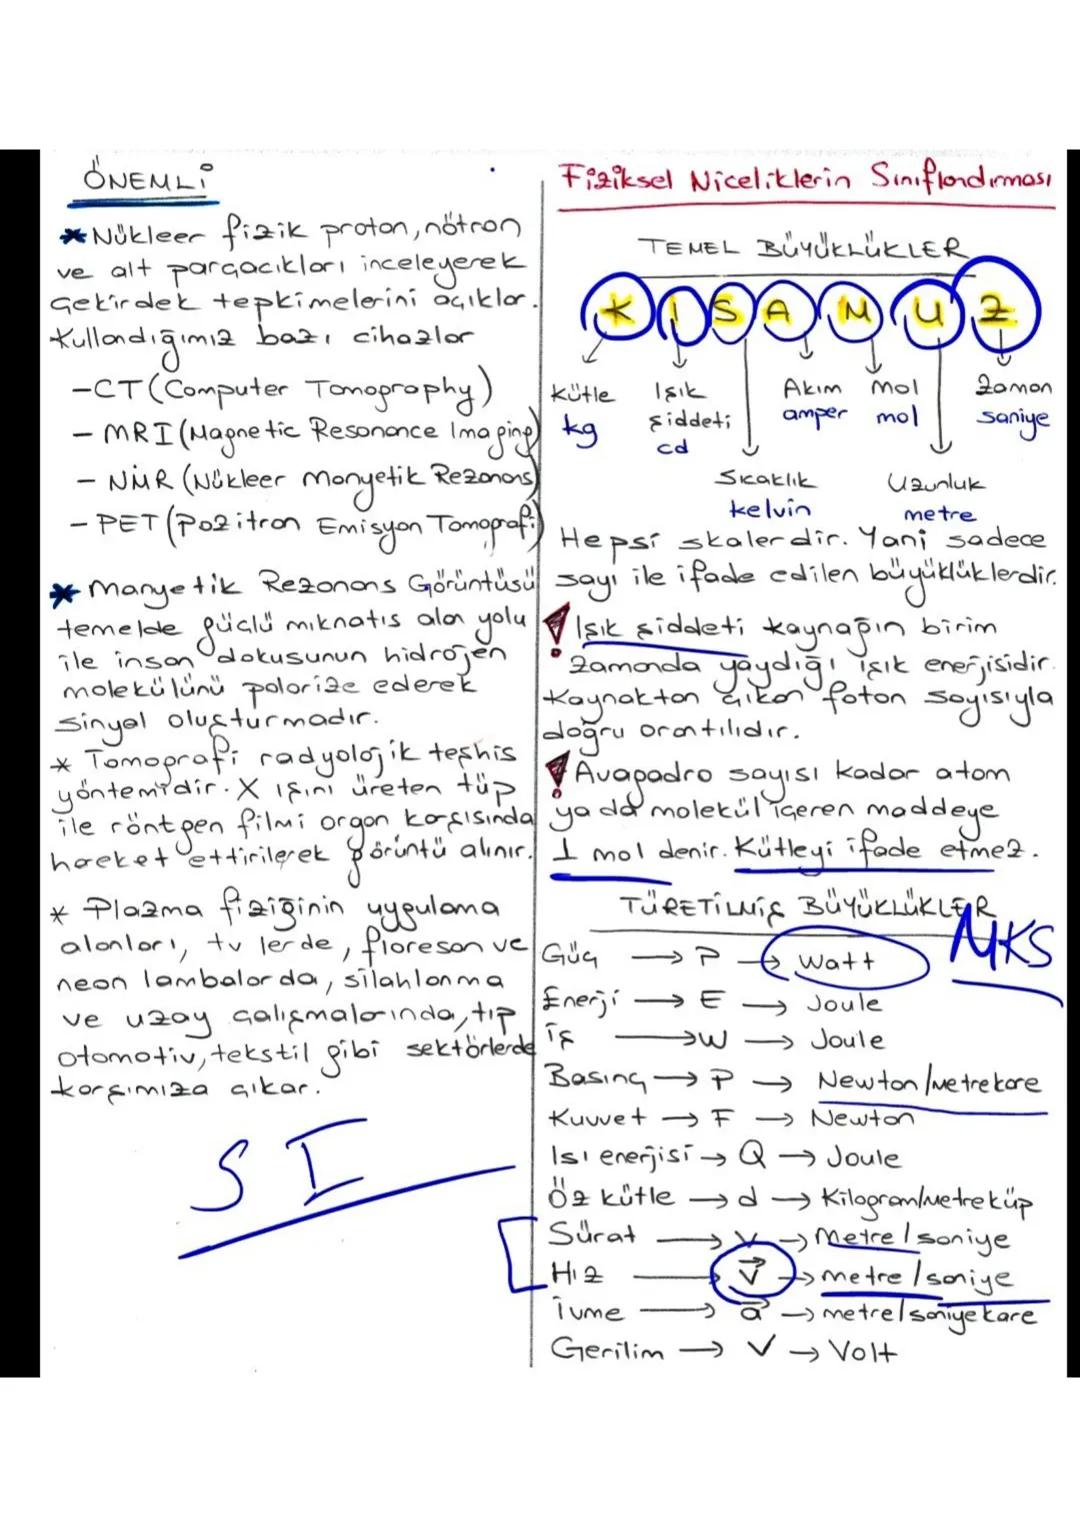 ÖNEMLİ
* Nükleer fizik proton, nötron
ve alt parçacıkları inceleyerek
Çekirdek tepkimelerini açıklar.
Kullandığımız bazı cihazlar
-CT (Computer Tomography)
- MRI (Magnetic Resonance Imaging)
- NMR (Nükleer Manyetik Rezonans)
- PET (Pozitron Emisyon Tomografi)
* Manyetik Rezonans Görüntüsü
temelde güçlü mıknatıs alan yolu
ile insan dokusunun hidrojen
molekülünü polarize ederek
sinyal oluşturmadır.
* Tomografi radyolojik teşhis
yöntemidir. X ışını üreten tüp
ile röntgen filmi organ karşısında
hareket ettirilerek görüntü alınır.
* Plazma fiziğinin uygulama
alanları, tv lerde, floresan ve
neon lambalarda, silahlanma
ve uzay çalışmalarında, tıp
otomotiv, tekstil gibi sektörlerde
karşımıza çıkar.
SI
Fiziksel Niceliklerin Sınıflandırması
TEMEL BÜYÜKLÜKLER
K I S A M U Z
Kütle Işık Akım Mol Zaman
kg şiddeti amper mol saniye
cd
Sıcaklık Uzunluk
kelvin metre
Hepsi skalerdir. Yani sadece
sayı ile ifade edilen büyüklüklerdir.
! Işık şiddeti kaynağın birim
zamanda yaydığı ışık enerjisidir.
Kaynaktan çıkan foton sayısıyla
doğru orantılıdır.
! Avagadro sayısı kadar atom
ya da molekül içeren maddeye
1 mol denir. Kütleyi ifade etmez.
TÜRETİLMİŞ BÜYÜKLÜKLER
MKS
Güç → P → Watt
Enerji → E → Joule
İş → W → Joule
Basınç → P → Newton/Metrekare
Kuvvet → F → Newton
Isı enerjisi → Q → Joule
Öz kütle → d → Kilogram/Metreküp
Sürat → v → Metre / saniye
Hız → v⃗ → metre / saniye
İvme → a⃗ → metre/saniyekare
Gerilim → V → Volt